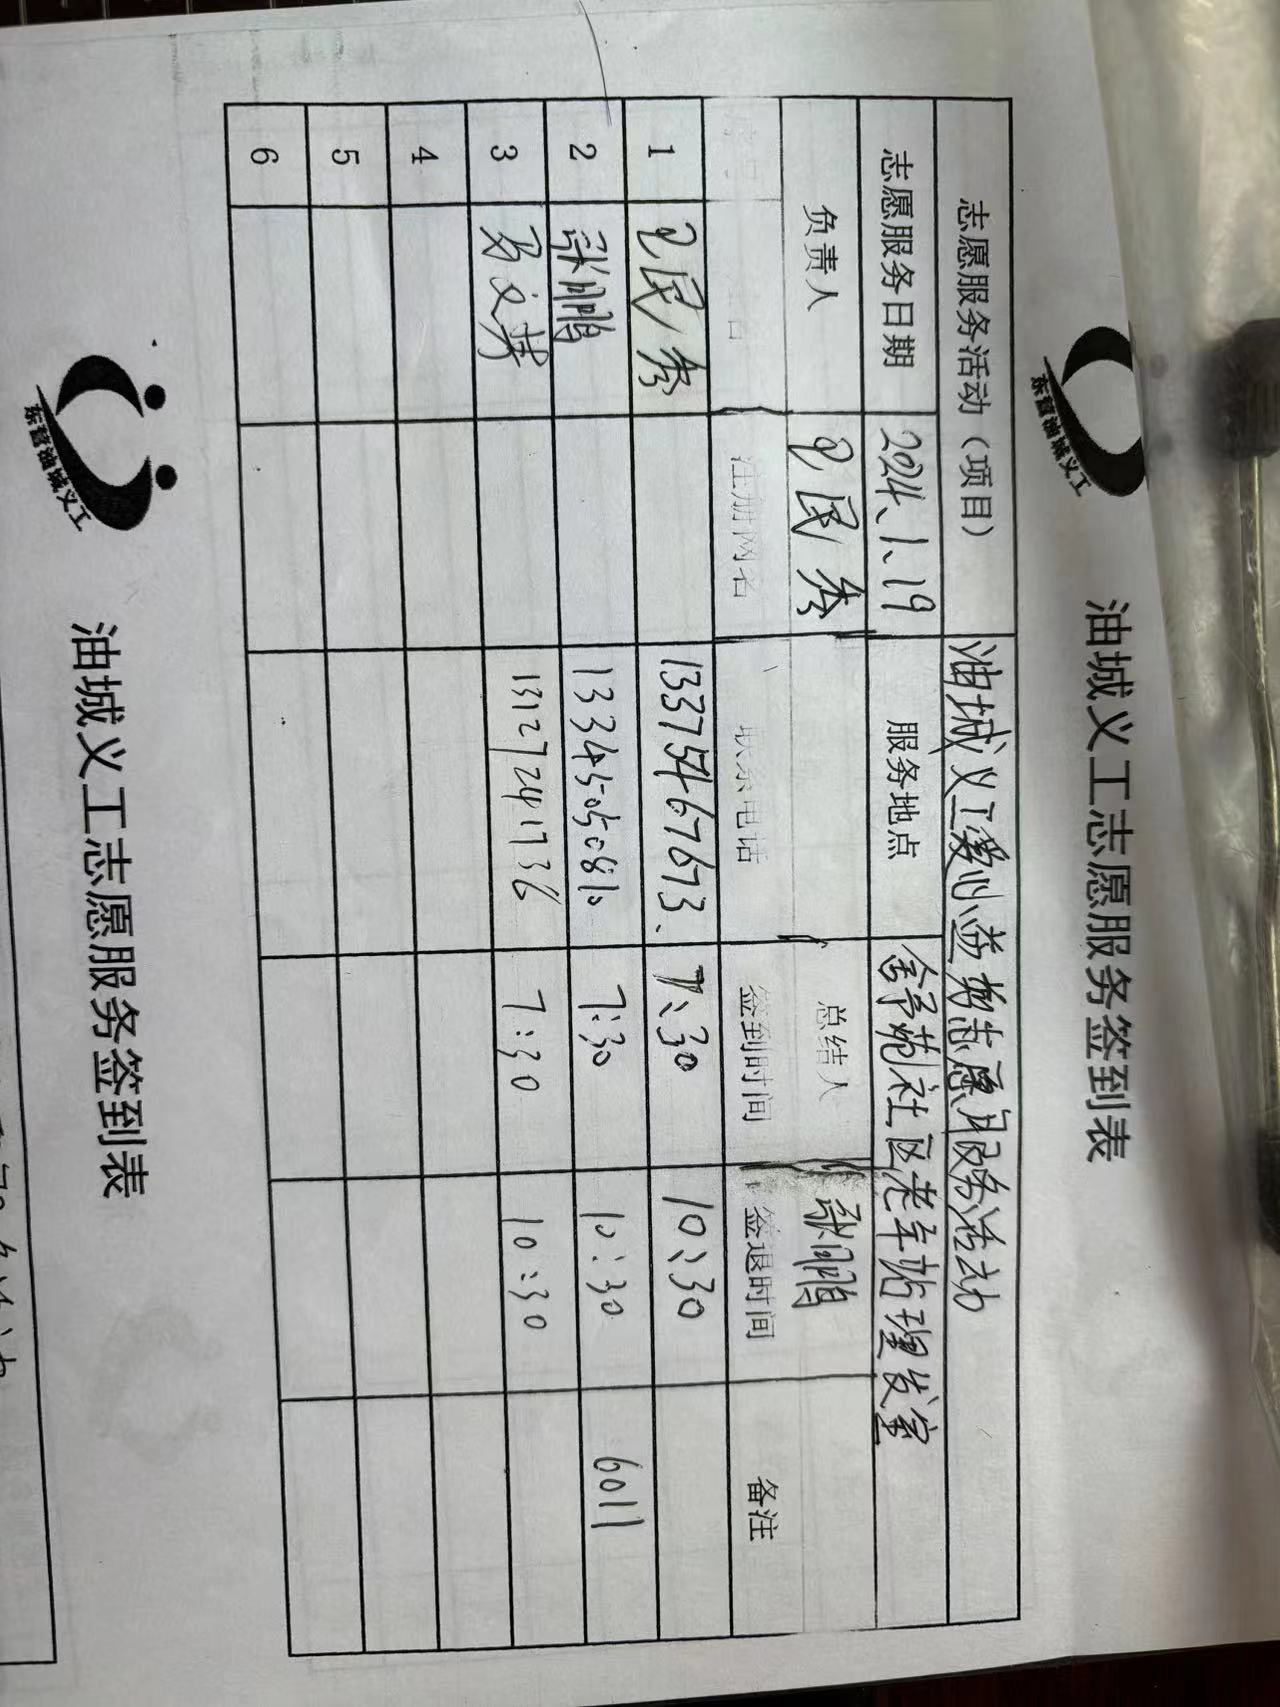 东营油城义工
油城义工志愿服务签到表
志愿服务活动（项目） 油城义工爱心益剪志愿服务活动
志愿服务日期 2024、1、19 服务地点 舍予苑社区老车站理发室
负责人 总结人 张鹏
序号 姓名 注册网名 联系电话 签到时间 签退时间 备注
1 13375467673、 7、30 10、30
2 张鹏 13345050810 7:30 10:30 6011
3 13127241736 7:30 10:30
4
5
6
东营油城义工
油城义工志愿服务签到表